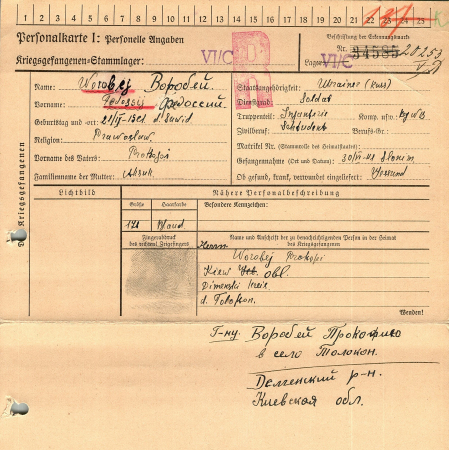 1 2 3 4 5 6 7 8 9 10 11 12 13 14 15 16 17 18 19 20 21 22 23 24 25
Personalkarte I: Personelle Angaben
Kriegsgefangenen-Stammlager:
VI/C
Beschriftung der Erkennungsmarke
Nr. 34585 20253
Lager VI/C
Des Kriegsgefangenen
Name: Worobej Воробей
Vorname: Fedossij Федоссий
Geburtstag und -ort:
Religion: Prawoslaw
Vorname des Vaters: Prokofi
Familienname der Mutter:
Staatsangehörigkeit: Ukrainer (Russ)
Dienstgrad: Soldat
Truppenteil: Infanterie Komp. usw.:
Zivilberuf: Berufs-Gr.:
Matrikel Nr. (Stammrolle des Heimatstaates):
Gefangennahme (Ort und Datum): Slonim
Ob gesund, krank, verwundet eingeliefert:
Lichtbild
Nähere Personalbeschreibung
Größe
Haarfarbe
Besondere Kennzeichen:
171
blond
Fingerabdruck
des rechten Zeigefingers
Name und Anschrift der zu benachrichtigenden Person in der Heimat
des Kriegsgefangenen
Herrn
Worobej Prokofi
Kiew obl.
Dimenski
d. Tolokon.
Wenden!
Г-ну. Воробей Прокофию
в село Толокон.
р-н.
Киевская обл.